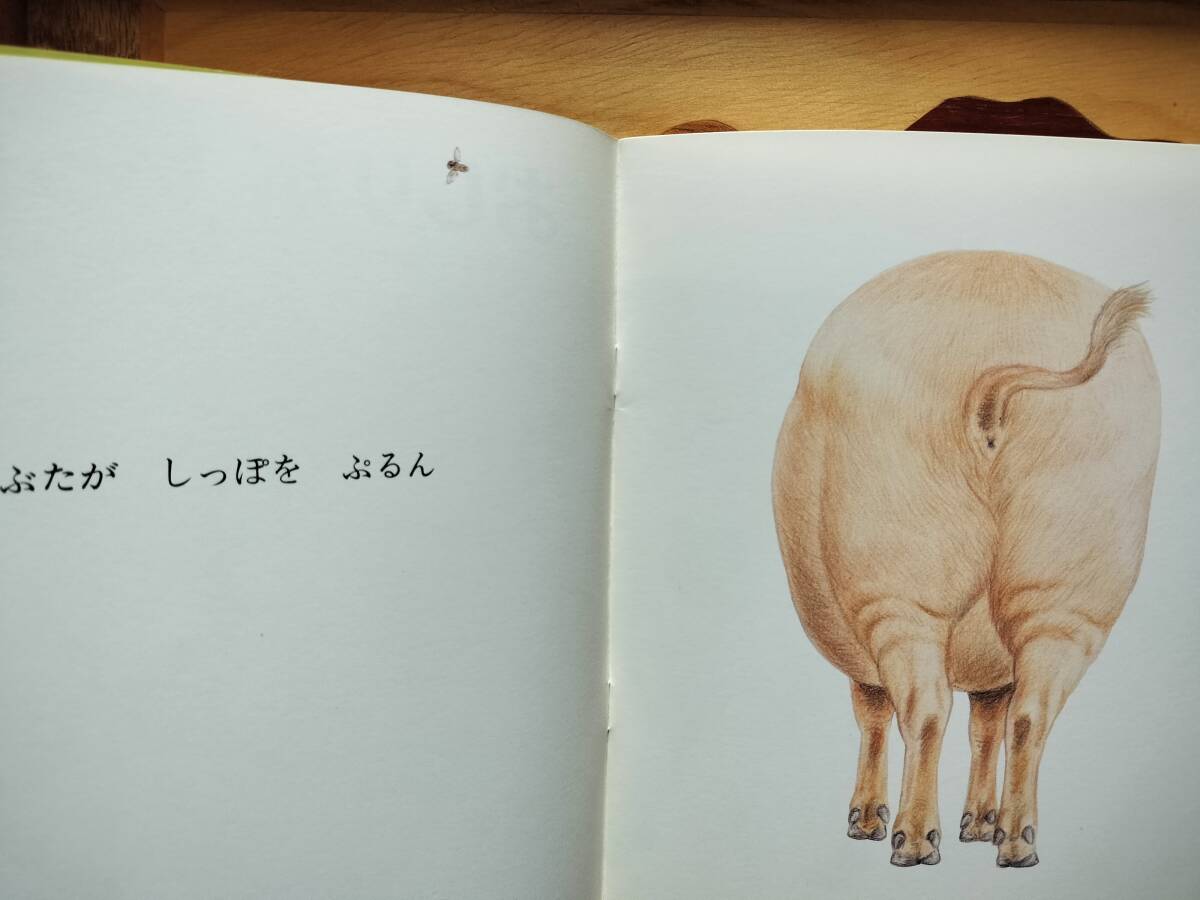 ぶたが　しっぽを　ぷるん